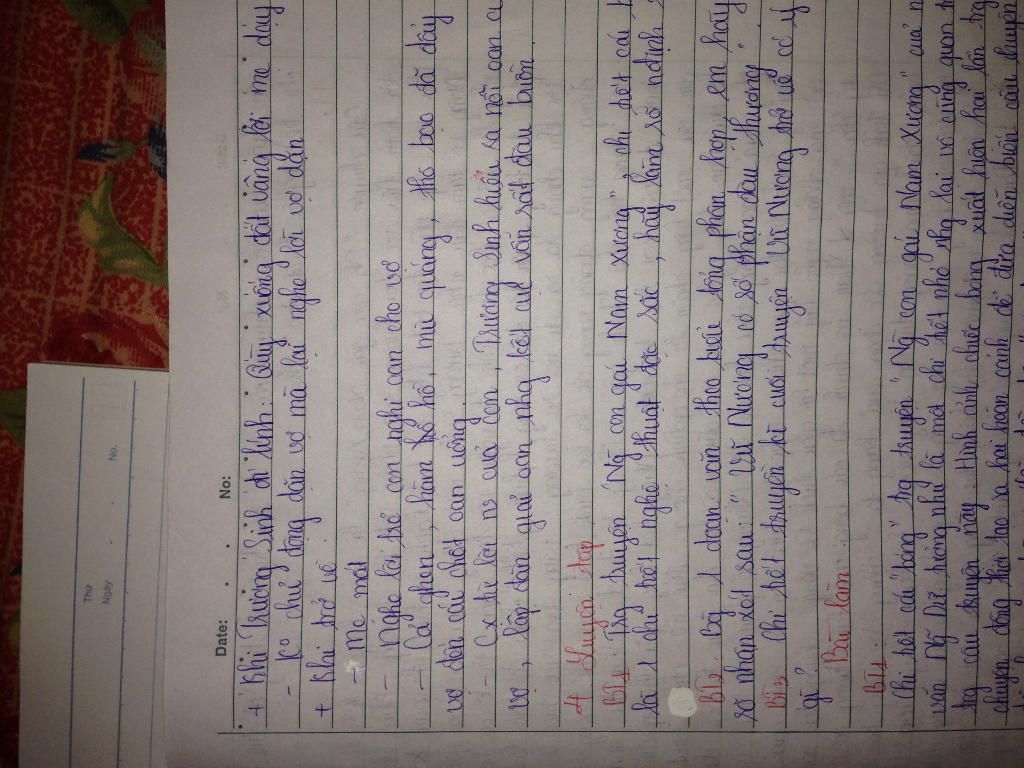 Thứ
Ngày
No.
Date: No:
+ Khi Trương Sinh đi lính: Quỳ xuống đất vâng lời mẹ dạy
- Ko chủ động dặn vợ mà lại nghe lời vợ dặn
+ Khi trở về
- Mẹ mất
- Nghe lời trẻ con nghi oan cho vợ
- Cả ghen, hàm hồ, mù quáng, thô bạo đã đẩy
vợ đến cái chết oan uổng
- Cx từ lời ns của con, Trương Sinh hiểu ra nỗi oan c
vợ, lập đàn giải oan nhg kết cục vẫn rất đau buồn
4 Luyện tập
BT1. Trg truyện "Ng con gái Nam xương", chi tiết cái
là 1 chi tiết nghệ thuật đặc sắc, hãy làm sáng
BT2. Bg 1 đoạn văn theo kiểu tổng phân hợp, em hãy
rõ nhận xét sau: "Vũ Nương có số phận đau thương"
BT3. Chi tiết truyền kì cuối truyện Vũ Nương trở về có ý
gì?
Bài làm
BT1.
Chi tiết cái "bóng" trg truyện "Ng con gái Nam xương" của n
văn Ng Dữ tưởng như là một chi tiết nhỏ nhg lại vô cùng quan tr
trg câu chuyện này. Hình ảnh chiếc bóng xuất hiện hai lần trg
chuyện đồng thời tạo ra hai hoàn cảnh để đưa diễn biến câu chuyện